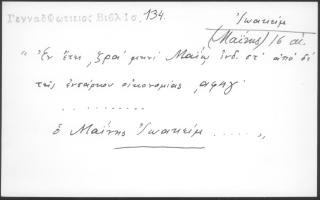 Γενναδ〈ωτικιος Βιβλ〉ισ, 134. Ἰωακεὶμ
(Μαΐνης) 16 αἰ.
"Ἐν ἔτει ͵ζραʹ μηνὶ Μαΐῳ ἰνδ. στʹ ἀπὸ δὲ
τῆς ἐνσάρκου οἰκονομίας ͵αφϟγʹ
. . . . . . . . .
ὁ Μαΐνης Ἰωακεὶμ . . . . . "